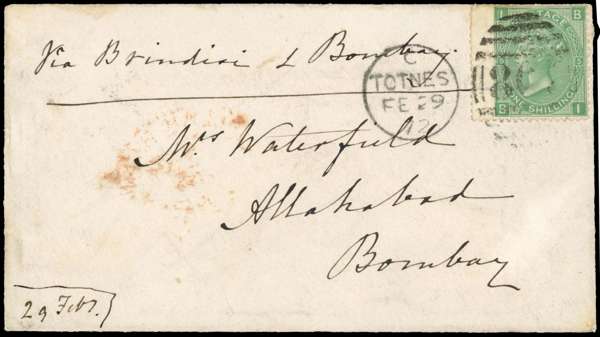 Via Brindisi & Bombay
C
TOTNES
FE 29
72
I B
POSTAGE
80
ONE SHILLING
B I
Mrs Waterfield
Allahabad
Bombay
29 Feb.